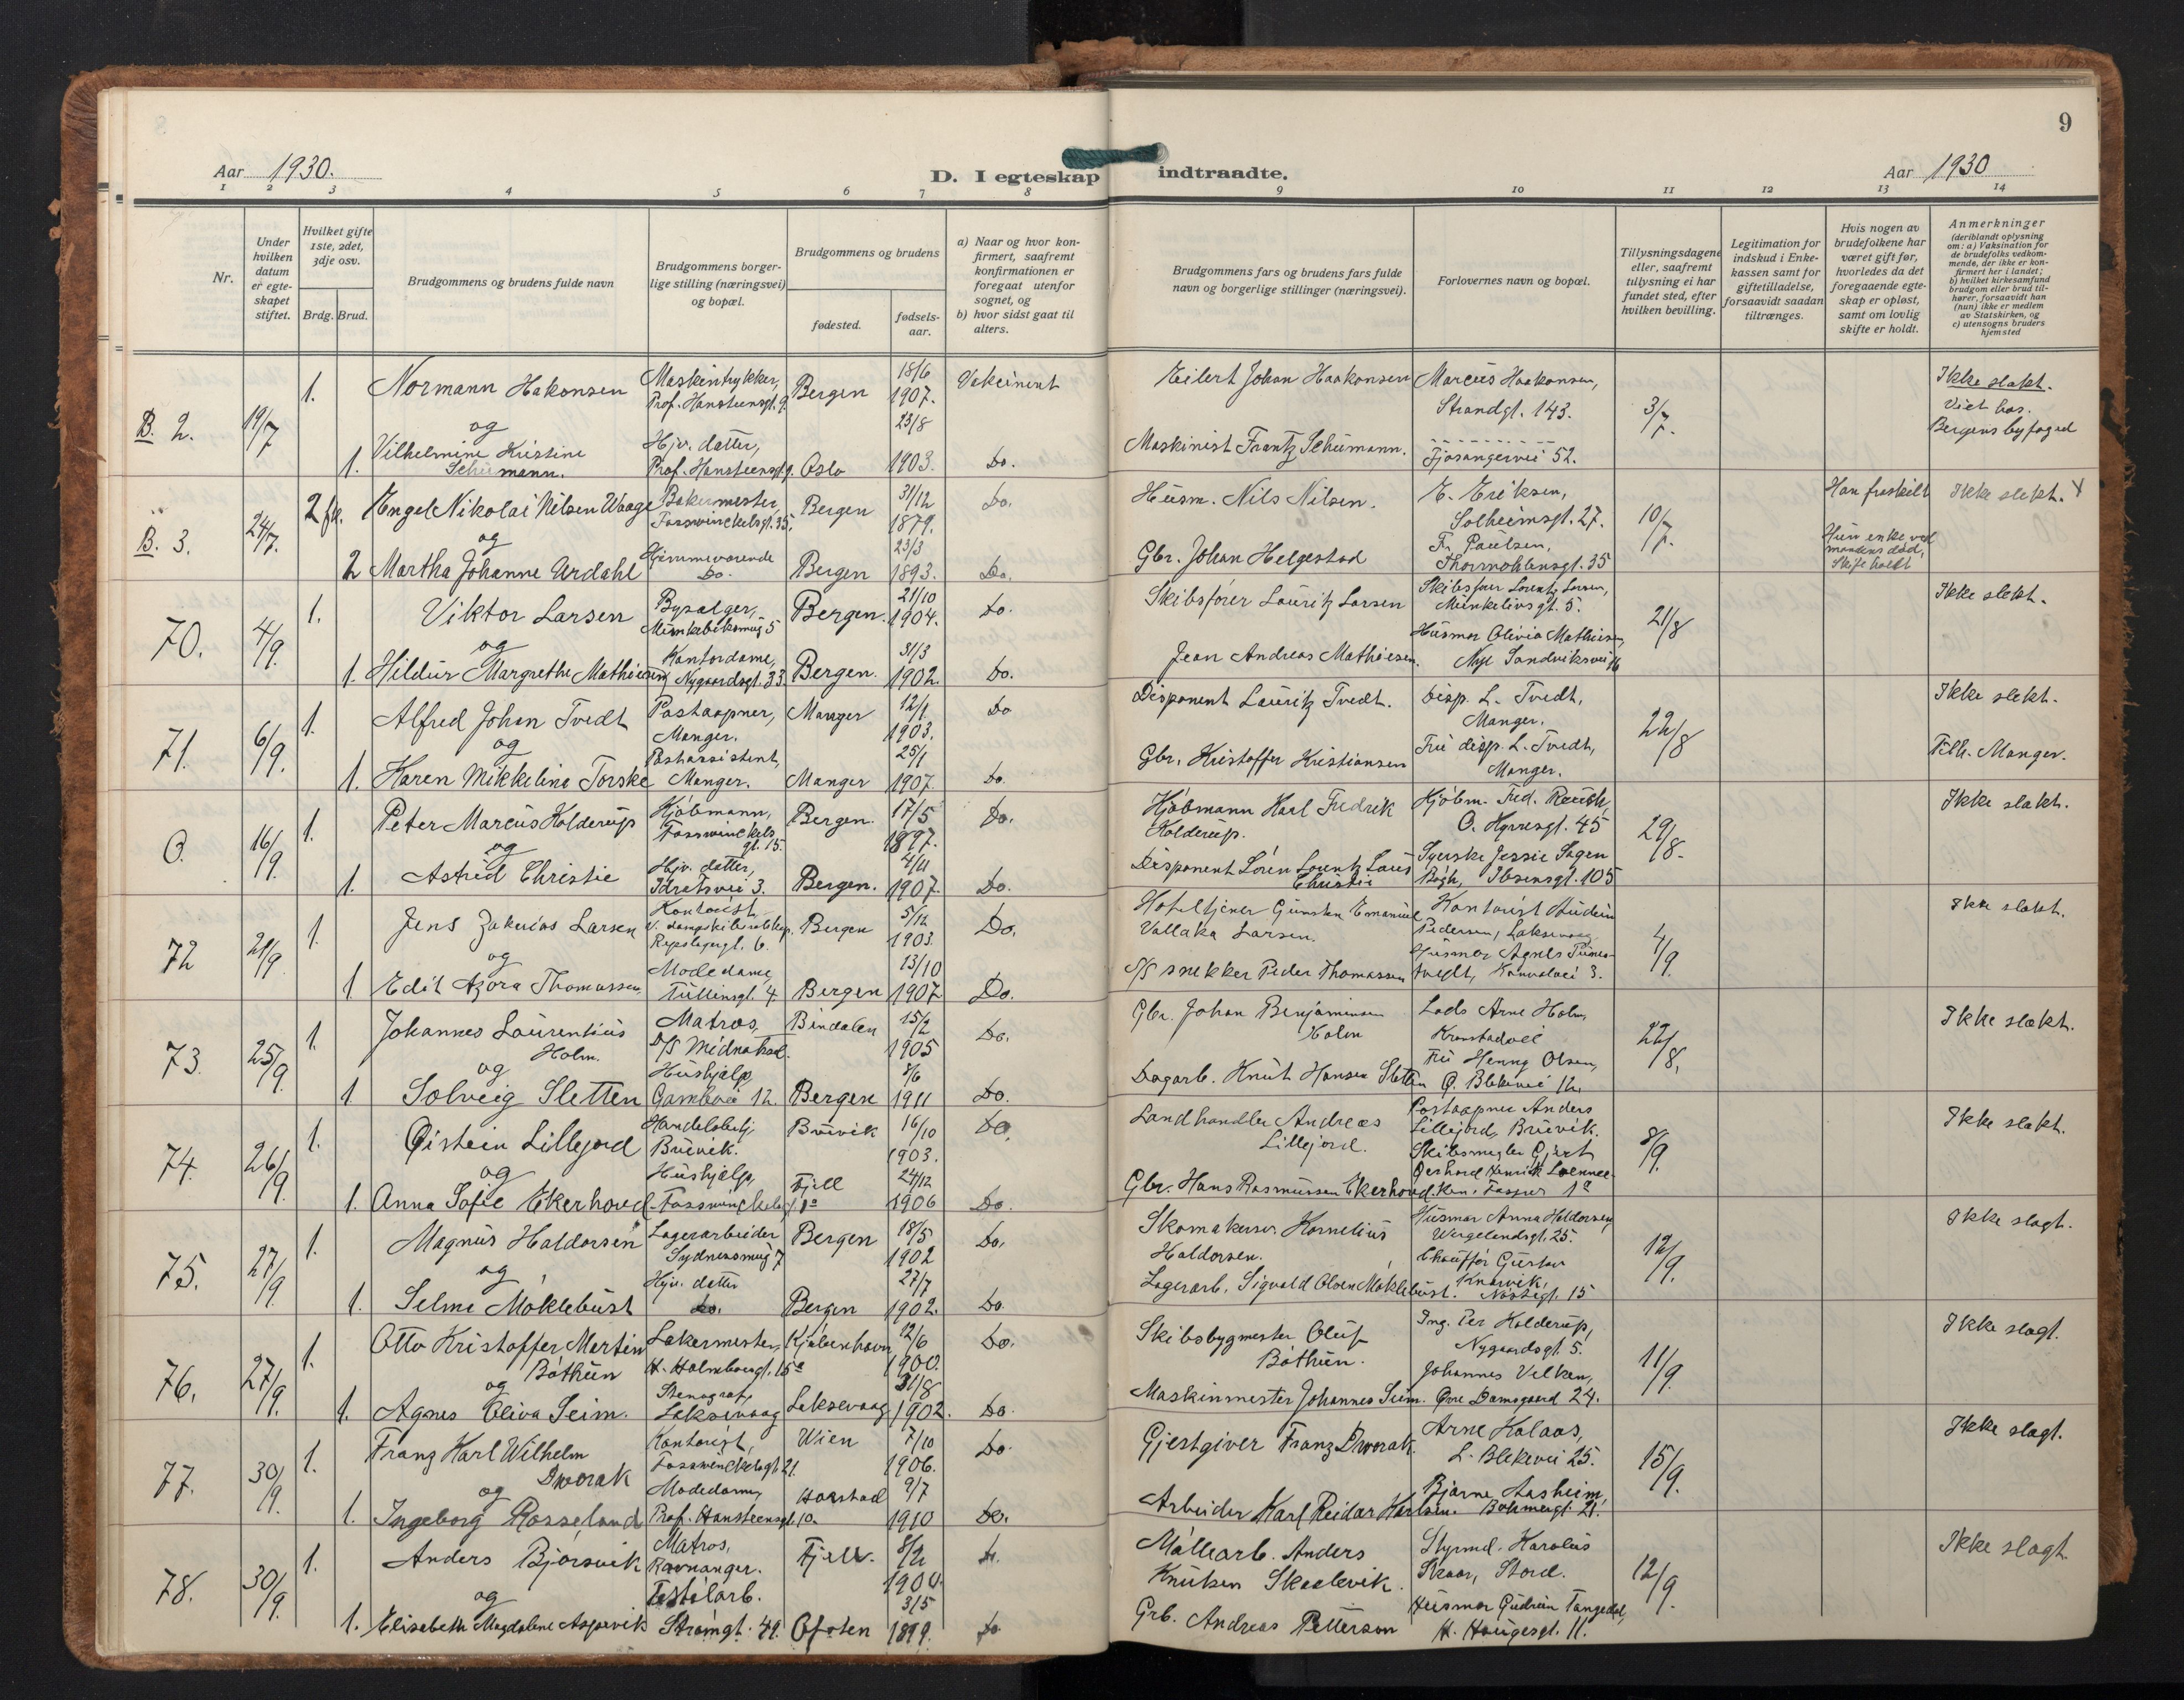 9
Aar 1930.
D. I egteskap indtraadte.
Aar 1930
1 2 3 4 5 6 7 8 9 10 11 12 13 14
Nr.
Under hvilken datum er egteskapet stiftet.
Hvilket gifte 1ste, 2det, 3dje osv.
Brdg. Brud.
Brudgommens og brudens fulde navn
Brudgommens borgerlige stilling (næringsvei) og bopæl.
Brudgommens og brudens
fødested.
fødselsaar.
a) Naar og hvor konfirmert, saafremt konfirmationen er foregaat utenfor sognet, og
b) hvor sidst gaat til alters.
Brudgommens fars og brudens fars fulde navn og borgerlige stillinger (næringsvei).
Forlovernes navn og bopæl.
Tillysningsdagene eller, saafremt tillysning ei har fundet sted, efter hvilken bevilling.
Legitimation for indskud i Enkekassen samt for giftetilladelse, forsaavidt saadan tiltrænges.
Hvis nogen av brudefolkene har været gift før, hvorledes da det foregaaende egteskap er opløst, samt om lovlig skifte er holdt.
Anmerkninger
(deriblandt oplysning om: a) Vaksination for de brudefolks vedkommende, der ikke er konfirmert her i landet; b) hvilket kirkesamfund brudgom eller brud tilhører, forsaavidt han (hun) ikke er medlem av Statskirken, og c) utensogns bruders hjemsted
B. 2. 19/7 1. Normann Hakonsen Maskintrykker, Prof. Hansteensgt. 9. Bergen 18/6 1907. Eilert Johan Haakonsen Marcus Haakonsen, Strandgt. 143. 3/7. Ikke slækt.
Bergens byfoged
og
1. Vilhelmine Kristine Schumann. Hjv. datter, Prof. Hansteensgt. 9. Oslo 23/8 1903. Do. Maskinist Frantz Schumann. Fjøsangervei 52.
B. 3. 24/7. 2 Engel Nikolai Nilsen Waage Bakermester, Fosswinckelsgt. 35. Bergen 31/12 1879. Do. Husm. Nils Nilsen. E. Eriksen, Solheimsgt. 27. 10/7. Han fraskilt Ikke slekt.
og
2 Martha Johanne Urdahl Hjemmeværende Do. Bergen 23/3 1893. Do. Gbr. Johan Helgestad Fr. Paulsen, Thormøhlensgt. 35 Hun enke ved mandens død, Skifte holdt
70. 4/9. 1. Viktor Larsen Bysælger, Bergen. 21/10 1904. Do. Skibsfører Lauritz Larsen Skibsfører Lorentz Larsen, Munkelivsgt. 5. 21/8 Ikke slekt.
og
1. Hildur Margrethe Mathiesen Kontordame, Nygaardsgt. 33. Bergen. 31/3 1902. Do. Jean Andreas Mathiesen. Husmor Olivia Mathiesen, Nye Sandviksvei
71. 6/9. 1. Alfred Johan Tvedt Postaapner, Manger. Manger 12/1 1903. Do Disponent Lauritz Tvedt. Disp. L. Tvedt, Manger. 22/8 Ikke slekt.
og
1. Karen Mikkelina Torske Postassistent, Manger. Manger 25/1 1907. Do. Gbr. Kristoffer Kristiansen Fru disp. L. Tvedt, Manger. Manger.
O. 16/9. 1. Peter Marcus Kolderup Kjøbmann, Fosswinckels gt. 15. Bergen. 17/5 1897. Do. Kjøbmann Karl Fredrik Kolderup. Kjøbm. Fred. Reusch, 29/8. Ikke slækt.
og
1. Astrid Christie Hjv. datter, Idrætsvei 3. Bergen. 4/11 1907. Do. Disponent Sören Lorentz Christie Jessie Sagen Bøgh, Ibsensgt. 105
72 21/9. 1. Jens Zakarias Larsen Kontorist Bergen 5/12 1903. Do. Hoteltjener Emanuel Larsen. Kontorist Pedersen, Laksevaag 4/9. Ikke slækt.
og
1. Edit Azora Thomassen. Modedame, Tullinsgt. 4 Bergen 13/10 1907 Do. S/S snekker Peder Thomassen Husmor Agnes
73. 25/9. 1. Johannes Laurentius Holm. Matros, Bindalen 15/2 1905 Do. Gbr. Johan Benjaminsen Holm Lods Arne Holm, Kronstadvei 22/8. Ikke slækt.
og
1. Solveig Sletten Hushjælp, Bergen 8/6 1911 Do. Dagarb. Knut Hansen Sletten Fru Henny Olsen, 12.
74. 26/9. 1. Øistein Lillejord Handelsbetj. Bruvik. Bruvik 16/10 1903. Do. Landhandler Andreas Lillejord. Postaapner Anders Lillejord, Bruvik. 8/9. Ikke slækt.
og
1. Anna Sofie Ekerhovd Hushjælp, Fjell 24/12 1906 Do. Gbr. Hans Rasmussen Ekerhovd. Skibsmegler Gjert Gerhard Henrik
75. 27/9. 1. Magnus Haldorsen Lagerarbeider Sydnessmug 7 Bergen 18/5 1902 Do. Skomakersv. Kornelius Haldorsen. Husmor Anna Haldorsen Wergelandsgt. 25. 12/9. Ikke slagt.
og
1. Selma Møklebust Hjv. datter Do. Bergen 27/7 1902. Do. Lagerarb. Sigvald Olsen Møklebust. Chauffør Gustav Knarvik, Nøstegt. 15
76. 27/9. 1. Otto Kristoffer Martin Bøthun Lakermester, H. Holmboesgt. 15a Kjøbenhavn 12/6 1900. Do. Skibsbygmester Oluf Bøthun. Ing. Per Kolderup, Nygaardsgt. 5. 11/9. Ikke slagt.
og
1. Agnes Oliva Seim. Stenograf, Laksevaag Laksevaag 31/8 1902. Do. Maskinmester Johannes Seim. Johannes Velken, Øvre Damsgaard 24.
77. 30/9. 1. Franz Karl Wilhelm Dworak Kontorist, Fosswinckelsgt. 21. Wien 7/10 1906. Do. Gjestgiver Franz Dworak. Arne Kalaas, L. Blekevei 25. 15/9. Ikke slagt.
og
1. Ingeborg Rosseland Modedame, Prof. Hansteensgt. 10. Harstad 9/7 1910 Do. Arbeider Karl Reidar Karlsen. Bjarne Aasheim, 21.
78. 30/9. 1. Anders Bjørsvik Matros, Ravnanger. Fjell. 1900. Møllearb. Anders Knutsen Skaalevik. Styrmd. Karolus Skaar, Stord. 12/9. Ikke slagt
og
1. Elisabeth Magdalene Aspevik Strømgt. 49. Ofoten 3/5 1899. Do Andreas Petterson Husmor Gudrun Tangedal, H. Haugesgt. 11.